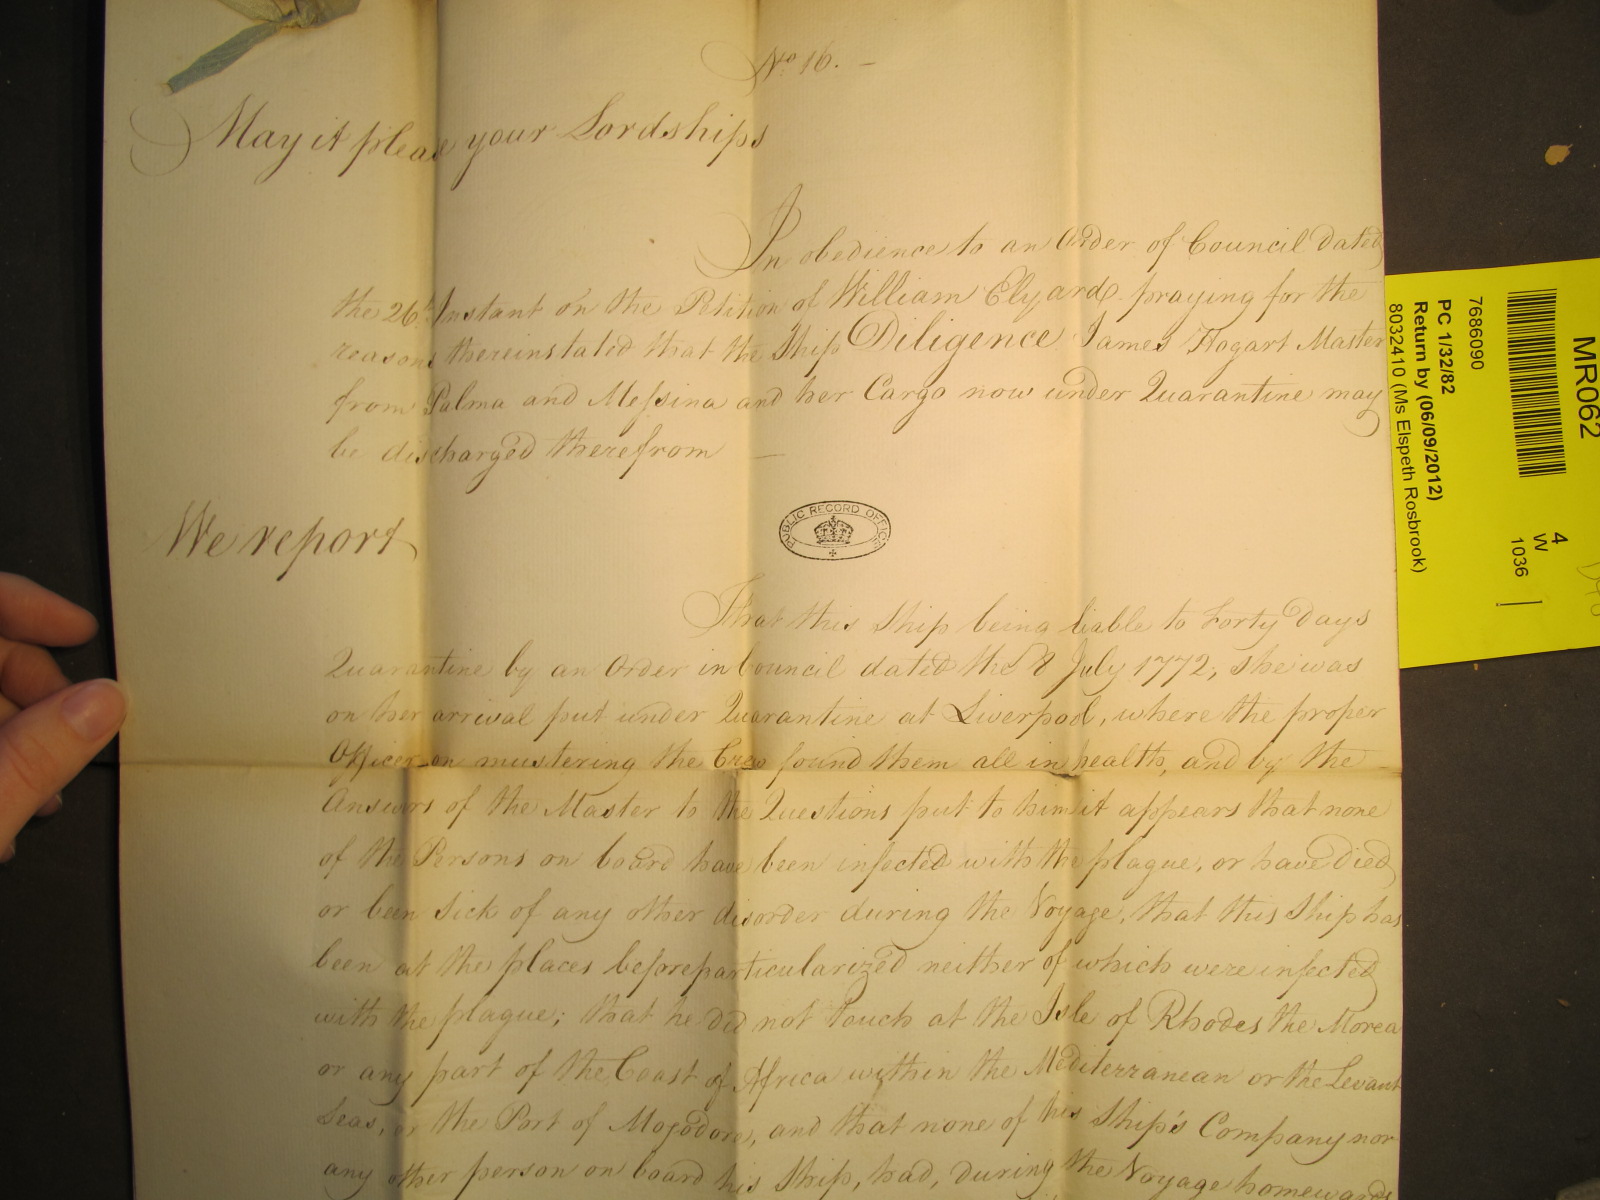 No 16. –
May it please your Lordships
In obedience to an Order of Council dated
the 26th Instant on the Petition of William Elyard praying for the
reasons therein stated that the Ship Diligence James Hogart Master
from Palma and Messina and her Cargo now under Quarantine may
be discharged therefrom —
We report
PUBLIC RECORD OFFICE
That this Ship being liable to Forty Days
Quarantine by an Order in Council dated the 8 July 1772, she was
on her arrival put under Quarantine at Liverpool, where the proper
Officer on mustering the Crew found them all in health, and by the
Answers of the Master to the Questions put to him it appears that none
of the Persons on board have been infected with the plague, or have Died
or been Sick of any other disorder during the Voyage, that this Ship has
been at the places before particularized neither of which were infected
with the plague; that he did not touch at the Isle of Rhodes the Morea
or any part of the Coast of Africa within the Mediterranean or the Levant
Seas, or the Port of Mogodore, and that none of his Ship's Company nor
any other person on board his Ship, had, during the Voyage homewards
MR062
4
W
1036
7686090
PC 1/32/82
Return by (06/09/2012)
8032410 (Ms Elspeth Rosbrook)